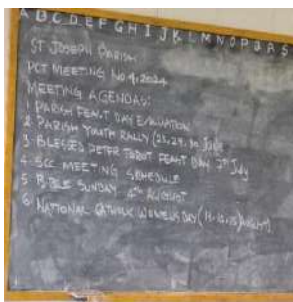 A B C D E F G H I J K L M N O P Q R S
ST JOSEPH PARISH
PCT MEETING NO 4, 2024
MEETING AGENDAS:
1 PARISH FEAST DAY EVALUATION
2 PARISH YOUTH RALLY (28, 29, 30 JUNE
3 BLESSED PETER TOROT FEAST DAY 7th July
4 SCC MEETING SCHEDULE
5 BIBLE SUNDAY 4TH AUGUST
6 NATIONAL CATHOLIC WOMENS DAY